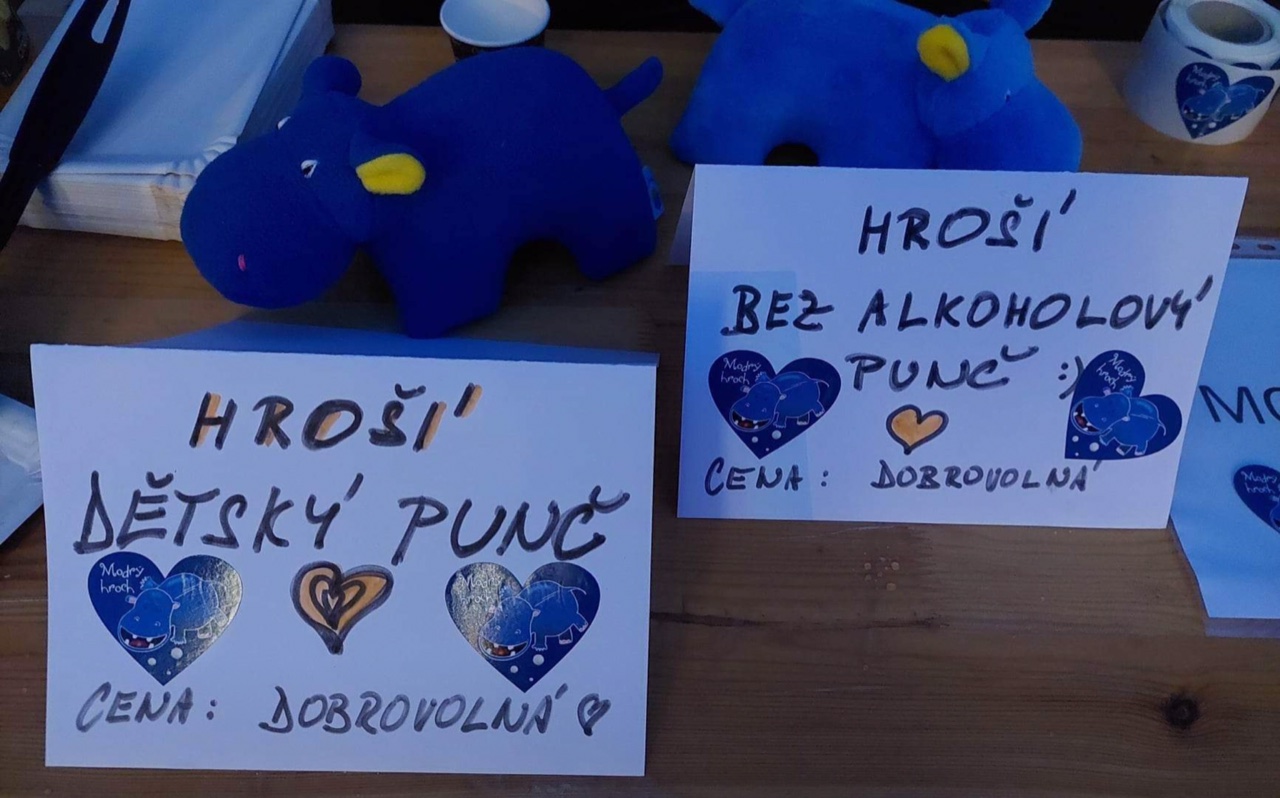 HROŠÍ
DĚTSKÝ PUNČ
Modrý
hroch
CENA: DOBROVOLNÁ
HROŠÍ
BEZ ALKOHOLOVÝ
PUNČ :)
Modrý
hroch
Modrý
hroch
CENA: DOBROVOLNÁ
Modrý
hroch
MO
Modrý